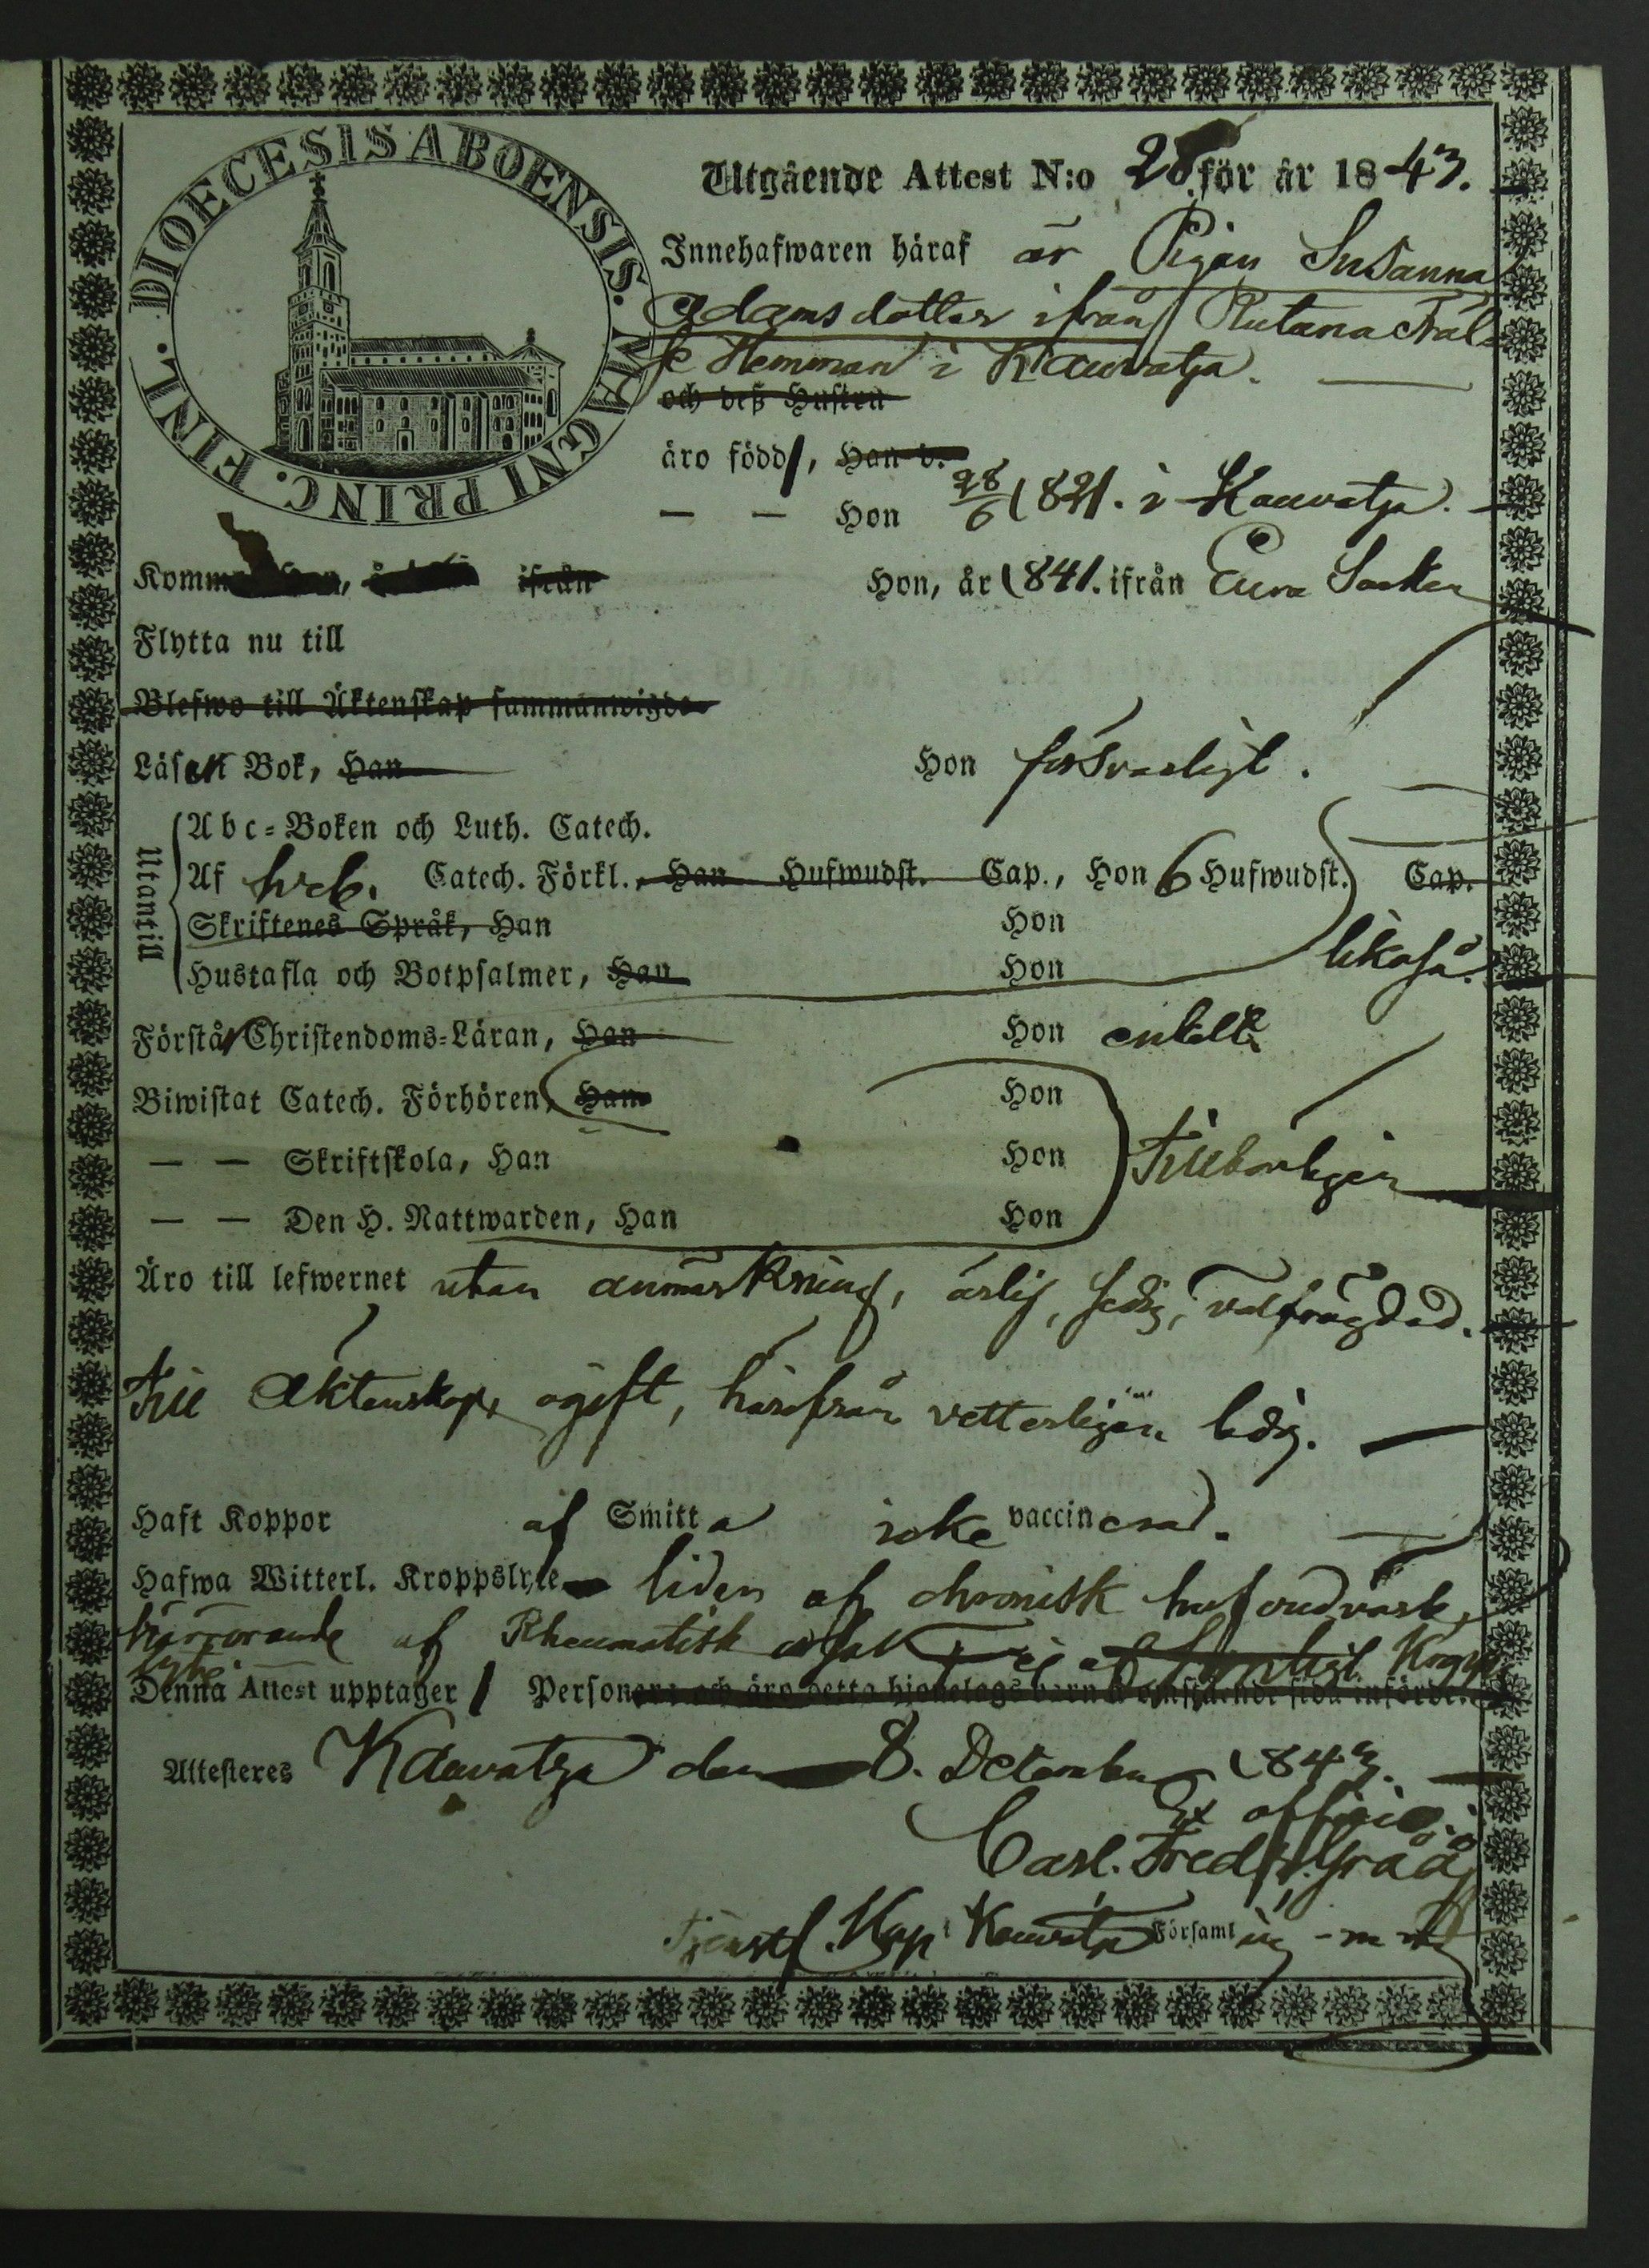 DIOECESIS ABOENSIS. MAGNI PRINC. FINL.
Utgående Attest N:o 28 för år 1843.
Innehafwaren häraf är Pigan Susanna
Adamsdotter ifrån
se Hemman i Kauvatsa.
och deß Hustru
äro född, Han d.
— — Hon 28/6 1821. i Kauvatsa.
ifrån Hon, år 1841. ifrån Eura
Flytta nu till
Blefwo till Äktenskap sammanwigde
Läsa i Bok, Han Hon försvarligt.
Utantill
Abc-Boken och Luth. Catech.
Af Catech. Förkl., Han Hufwudst. Cap., Hon 6 Hufwudst. Cap.
Skriftenes Språk, Han Hon
Hustafla och Botpsalmer, Han Hon likaså.
Förstår Christendoms-Läran, Han Hon enkelt
Biwistat Catech. Förhören, Han Hon
— — Skriftskola, Han Hon tillbörligen
— — Den H. Nattwarden, Han Hon
Äro till lefwernet utan anmärkning, ärlig, sedig, välfrägdad.
till Äktenskap, ogift, härifrån vetterligen ledig.
Haft Koppor af Smitta icke vaccinerad.
Hafwa Witterl. Kroppslyte liden af chronisk hufvudvärk,
härrörande af Rheumatisk orsak
lyte.
Denna Attest upptager 1 Personer; och äro detta hjonelags barn å omstående sida införde.
Attesteres Kauvatsa den 8. December 1843.
Ex officio:
Carl. Fredr. Gråå
Kap i Kauvatsa Församling